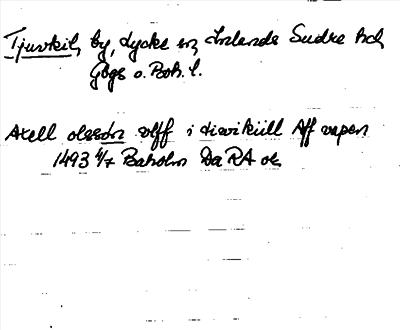 Tjuvkil, by, Lycke sn, Inlands Södre hd,
Gbgs o. Boh. l.
Axell olssøn wlff i tiwikiill Aff vapen
1493 4/7 Baholm Da RA or